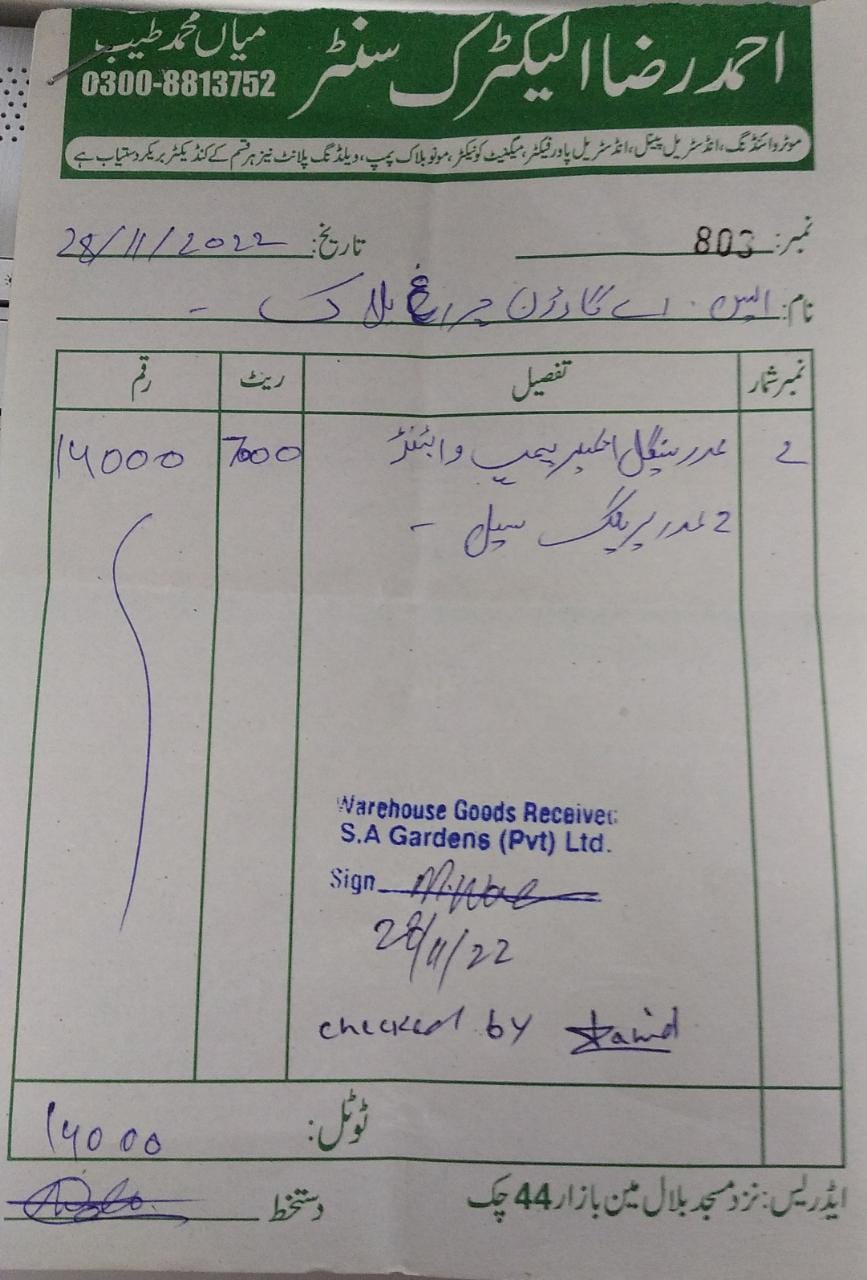 احمد رضا الیکٹرک سنٹر
میاں محمد طیب
0300-8813752
موٹر وائنڈنگ، انڈسٹریل پینل، انڈسٹریل پاور فیکٹر، میگنیٹ کونیکٹر، مونو بلاک پمپ، ویلڈنگ پلانٹ نیز ہر قسم کے کنڈیکٹر بریکر دستیاب ہے
نمبر: 803 تاریخ: 28/11/2022
نام: ایس. اے گارڈن چراغ بلاک -
نمبر شمار تفصیل ریٹ رقم
2 عدد سنگل پمپ وائنڈ 7000 14000
2 عدد سیل -
Warehouse Goods Received
S.A Gardens (Pvt) Ltd.
Sign
28/11/22
checked by
ٹوٹل: 14000
ایڈریس: نزد مسجد بلال مین بازار 44 چک دستخط